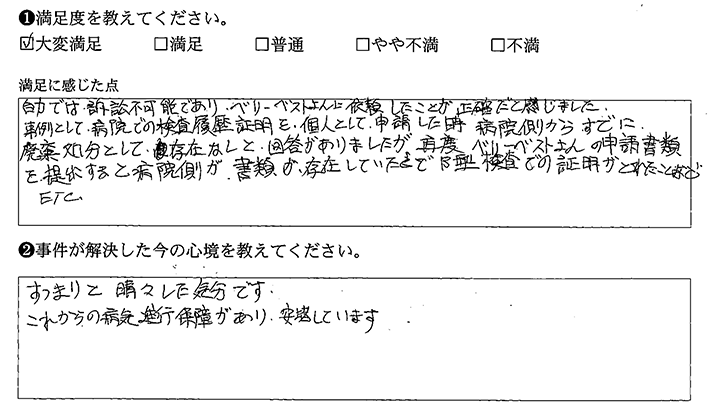 ❶満足度を教えてください。
☑大変満足 □満足 □普通 □やや不満 □不満
満足に感じた点
自力では、訴訟不可能であり、ベリーベストさんに依頼したことが正確だと感じました。
事例として、病院での検査履歴証明を、個人として、申請した時 病院側からすでに、
廃棄処分として、存在なしと、回答がありましたが 再度 ベリーベストさんの申請書類
を提出すると病院側が、書類が、存在していたとで 検査での証明がとれたことなど
ETC
❷事件が解決した今の心境を教えてください。
すっきりと 晴々した気分です。
これからの病気進行保障があり、安心しています